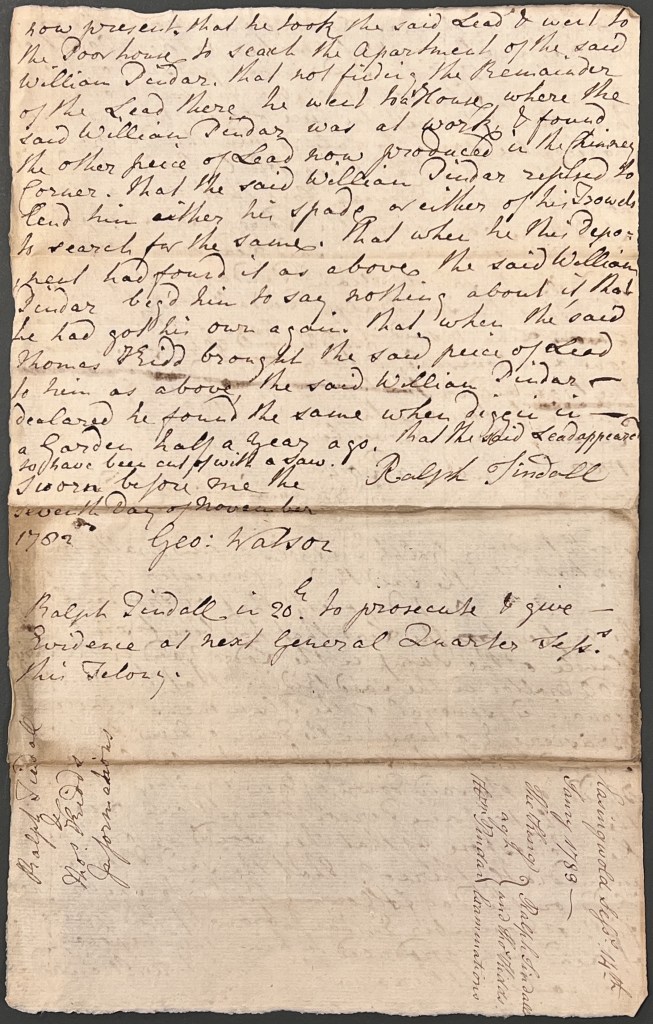 now present, that he took the said Lead & went to
the Poorhouse to seach the Apartment of the said
William Pindar. that not finding the Remainder
of the Lead there, he went to a House where the
said William Pindar was at work & found
the other peice of Lead now produced in the Chimney
Corner. That the said William Pindar refused to
lend him either his spade or either of his Trowels
to search for the same. That when he this Depo-
nent had found it as above the said William
Pindar beg'd him to say nothing about it that
he had got his own again. That when the said
Thomas Kidd brought the said peice of Lead
to him as above, the said William Pindar —
declared he found the same when diggin in —
a Garden half a Year ago. that the said Lead appeared
to have been cut of with a saw.
Ralph Tindall
Sworn before me the
seventh Day of November
1782
Geo: Watson
Ralph Tindall in 20£ to prosecute & give —
Evidence at next General Quarter Sess.s
this Felony.
Ralph Tindal
&
Thos. Kidd's
Informations
Easingwold Sess. 14th
Janry 1783 —
The King
agt.
Wm Pindar
Ralph Tindall
and Tho
Examinations